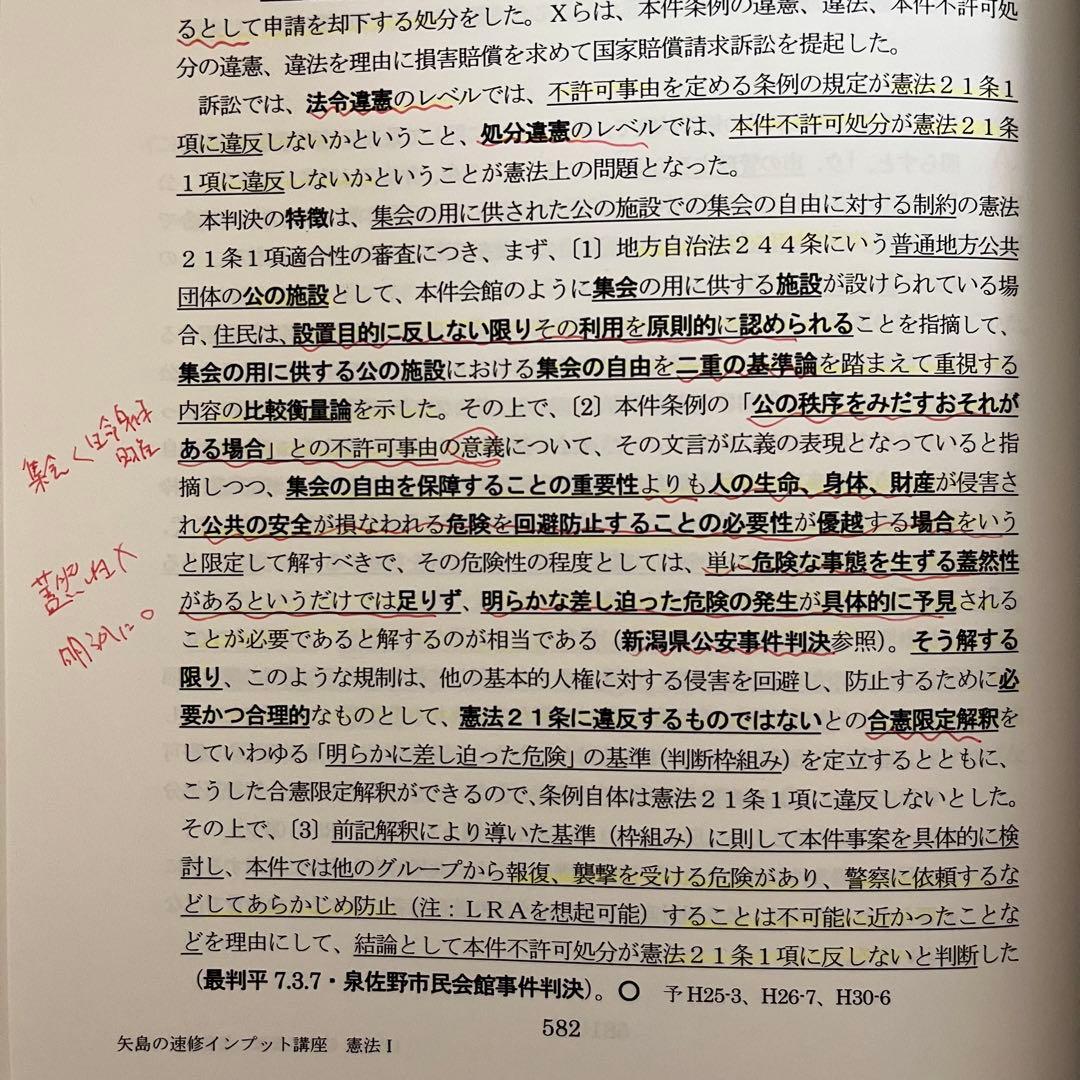 るとして申請を却下する処分をした。Xらは、本件条例の違憲、違法、本件不許可処
分の違憲、違法を理由に損害賠償を求めて国家賠償請求訴訟を提起した。
訴訟では、法令違憲のレベルでは、不許可事由を定める条例の規定が憲法21条1
項に違反しないかということ、処分違憲のレベルでは、本件不許可処分が憲法21条
1項に違反しないかということが憲法上の問題となった。
本判決の特徴は、集会の用に供された公の施設での集会の自由に対する制約の憲法
21条1項適合性の審査につき、まず、〔1〕地方自治法244条にいう普通地方公共
団体の公の施設として、本件会館のように集会の用に供する施設が設けられている場
合、住民は、設置目的に反しない限りその利用を原則的に認められることを指摘して、
集会の用に供する公の施設における集会の自由を二重の基準論を踏まえて重視する
内容の比較衡量論を示した。その上で、〔2〕本件条例の「公の秩序をみだすおそれが
ある場合」との不許可事由の意義について、その文言が広義の表現となっていると指
摘しつつ、集会の自由を保障することの重要性よりも人の生命、身体、財産が侵害さ
れ公共の安全が損なわれる危険を回避防止することの必要性が優越する場合をいう
と限定して解すべきで、その危険性の程度としては、単に危険な事態を生ずる蓋然性
があるというだけでは足りず、明らかな差し迫った危険の発生が具体的に予見される
ことが必要であると解するのが相当である（新潟県公安事件判決参照）。そう解する
限り、このような規制は、他の基本的人権に対する侵害を回避し、防止するために必
要かつ合理的なものとして、憲法21条に違反するものではないとの合憲限定解釈を
していわゆる「明らかに差し迫った危険」の基準（判断枠組み）を定立するとともに、
こうした合憲限定解釈ができるので、条例自体は憲法21条1項に違反しないとした。
その上で、〔3〕前記解釈により導いた基準（枠組み）に則して本件事案を具体的に検
討し、本件では他のグループから報復、襲撃を受ける危険があり、警察に依頼するな
どしてあらかじめ防止（注：LRAを想起可能）することは不可能に近かったことな
どを理由にして、結論として本件不許可処分が憲法21条1項に反しないと判断した
（最判平7.3.7・泉佐野市民会館事件判決）。〇 予H25-3、H26-7、H30-6
582
矢島の速修インプット講座 憲法Ⅰ
集会＜
蓋然性×
明らかに○